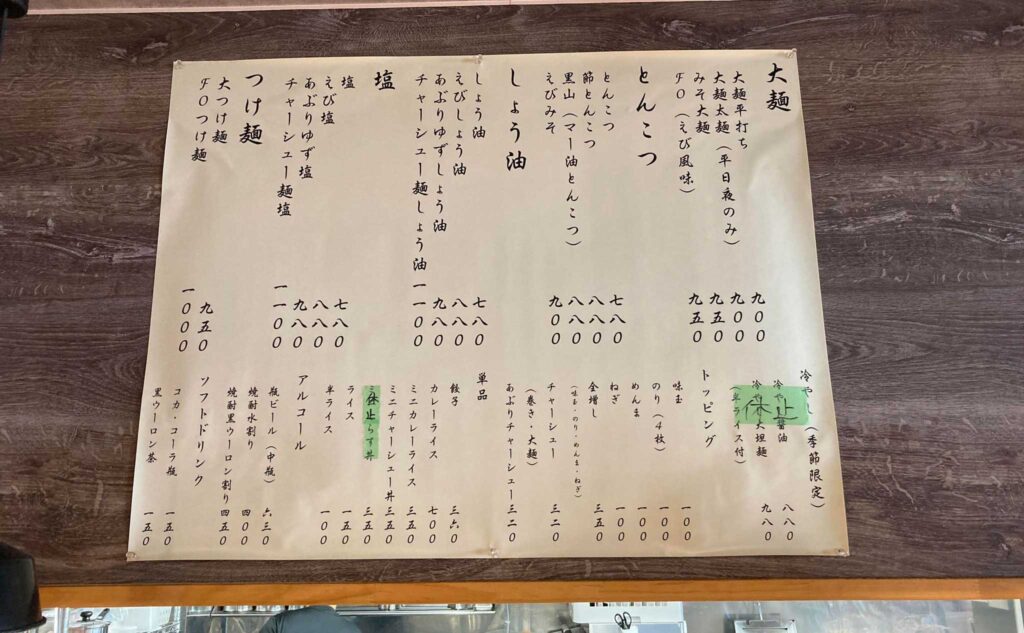 大麺
大麺平打ち 九〇〇
大麺太麺（平日夜のみ） 九〇〇
みそ大麺 九五〇
FO（えび風味） 九五〇
とんこつ
とんこつ 七八〇
節とんこつ 八八〇
黒山（マー油とんこつ） 八八〇
えびみそ 九〇〇
しょう油
しょう油 七八〇
えびしょう油 八八〇
あぶりゆずしょう油 九八〇
チャーシュー麺しょう油 一一〇〇
塩
塩 七八〇
えび塩 八八〇
あぶりゆず塩 九八〇
チャーシュー麺塩 一一〇〇
つけ麺
大つけ麺 九五〇
FOつけ麺 一〇〇〇
冷やし（季節限定）
休止
醤油 八八〇
大坦麺 九八〇
（半ライス付）
トッピング
味玉 一〇〇
のり（4枚） 一〇〇
めんま 一〇〇
ねぎ 一〇〇
全増し 三五〇
（味玉・のり・めんま・ねぎ）
チャーシュー 三二〇
（巻き・大麺）
あぶりチャーシュー 三二〇
単品
餃子 三六〇
カレーライス 七〇〇
ミニカレーライス 三五〇
ミニチャーシュー丼 三五〇
休止
らす丼 三五〇
ライス 一五〇
半ライス 一〇〇
アルコール
瓶ビール（中瓶） 六三〇
焼酎水割り 四〇〇
焼酎黒ウーロン割り 四五〇
ソフトドリンク
コカ・コーラ瓶 一五〇
黒ウーロン茶 一五〇